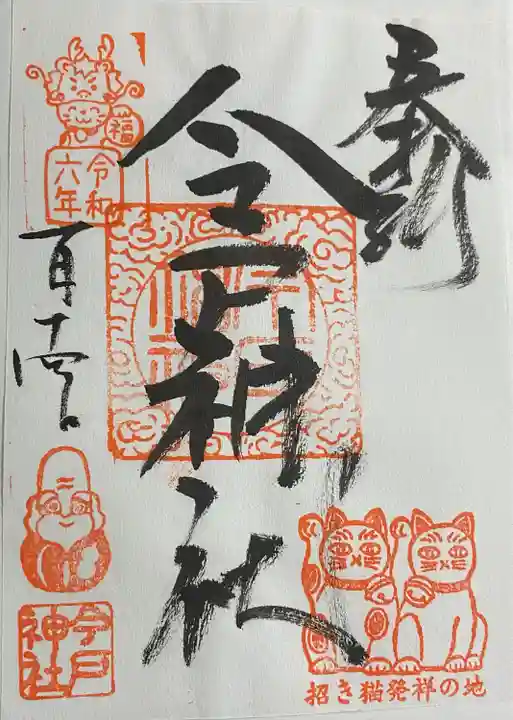 奉拝
今戸神社
福
令和
六年
一月十壱日
今戸
神社
招き猫発祥の地